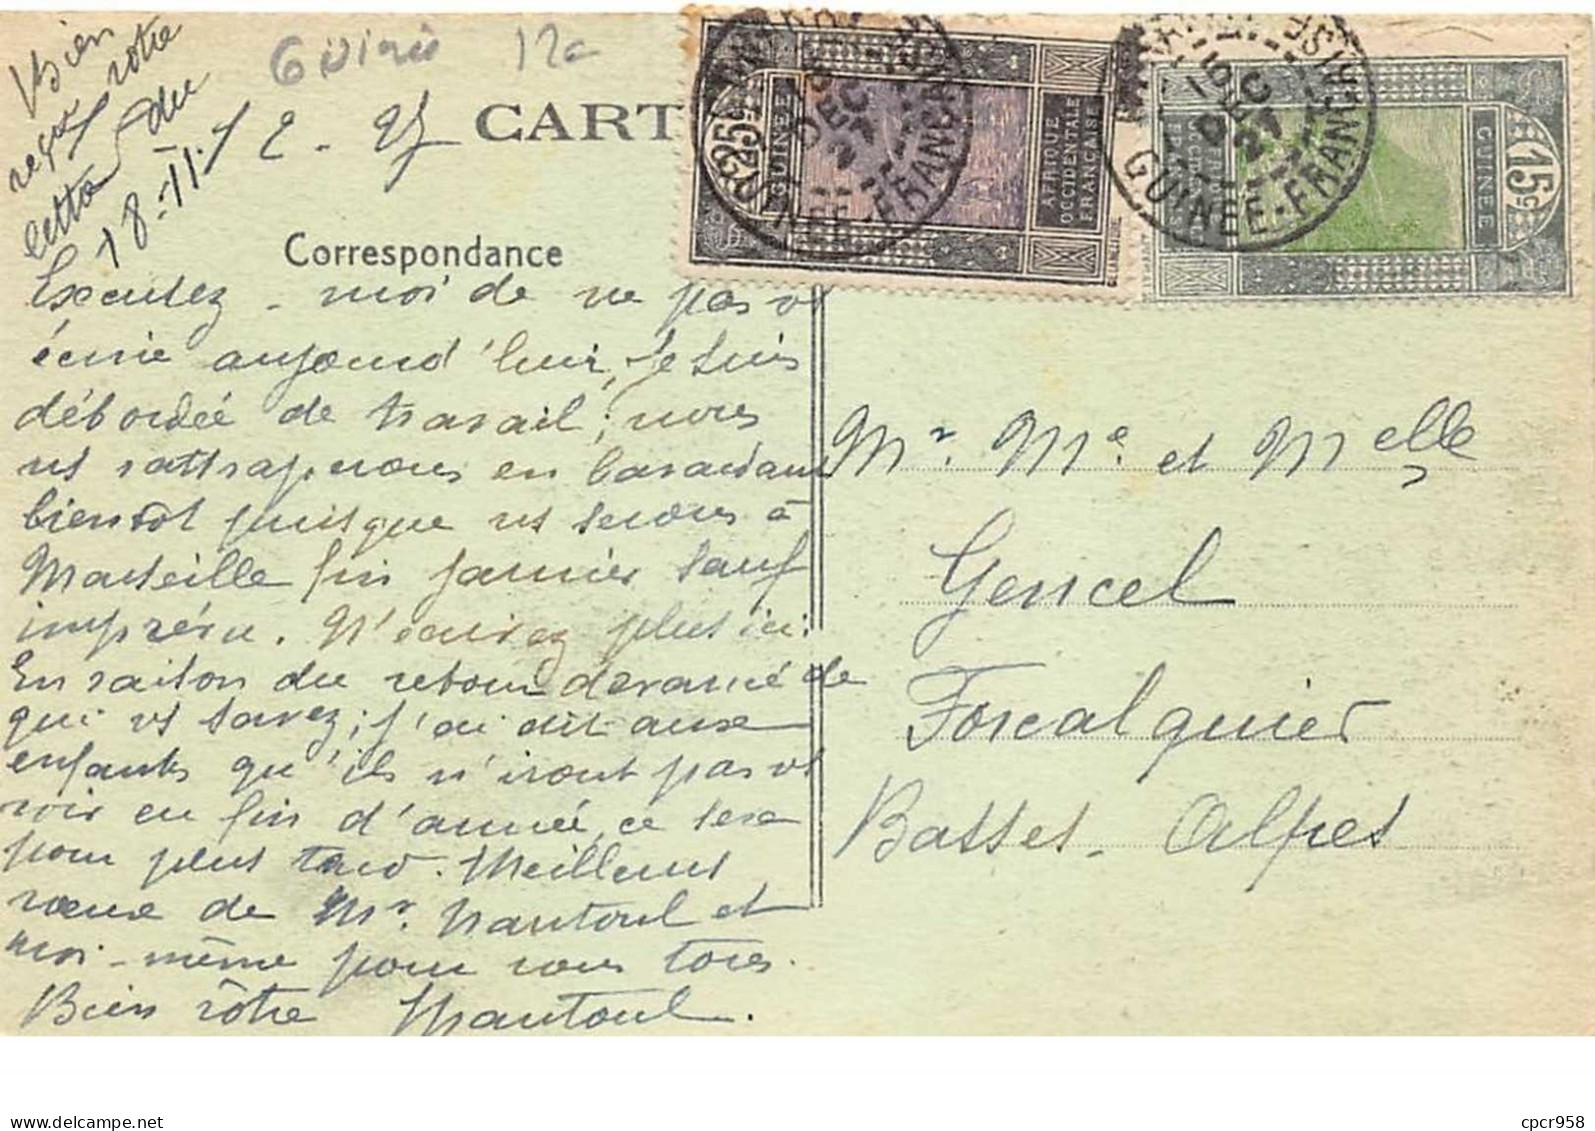 Guinée 12c
Bien
reçu votre
lettre du
18-11.
/ 2 - 27
CART
Correspondance
Excusez-moi de ne pas vs
écrire aujourd'hui, je suis
débordée de travail; nous
ns rattraperons en bavardant
bientôt puisque ns serons à
Marseille fin janvier sauf
imprévu. N'écrivez plus ici.
En raison du retour devancé de
qui vs savez; j'ai dit aux
enfants qu'ils n'iront pas vs
voir en fin d'année, ce sera
pour plus tard. Meilleurs
vœux de Mr. Nantoul et
moi-même pour vous tous.
Bien vôtre Nantoul.
25c
GUINÉE
AFRIQUE
OCCIDENTALE
FRANÇAISE
DEC
27
GUINÉE-FRANÇAISE
15c
GUINÉE
10
DEC
27
GUINÉE-FRANÇAISE
Mr. Me. et Melle
Gencel
Forcalquier
Basses-Alpes
cpcr958